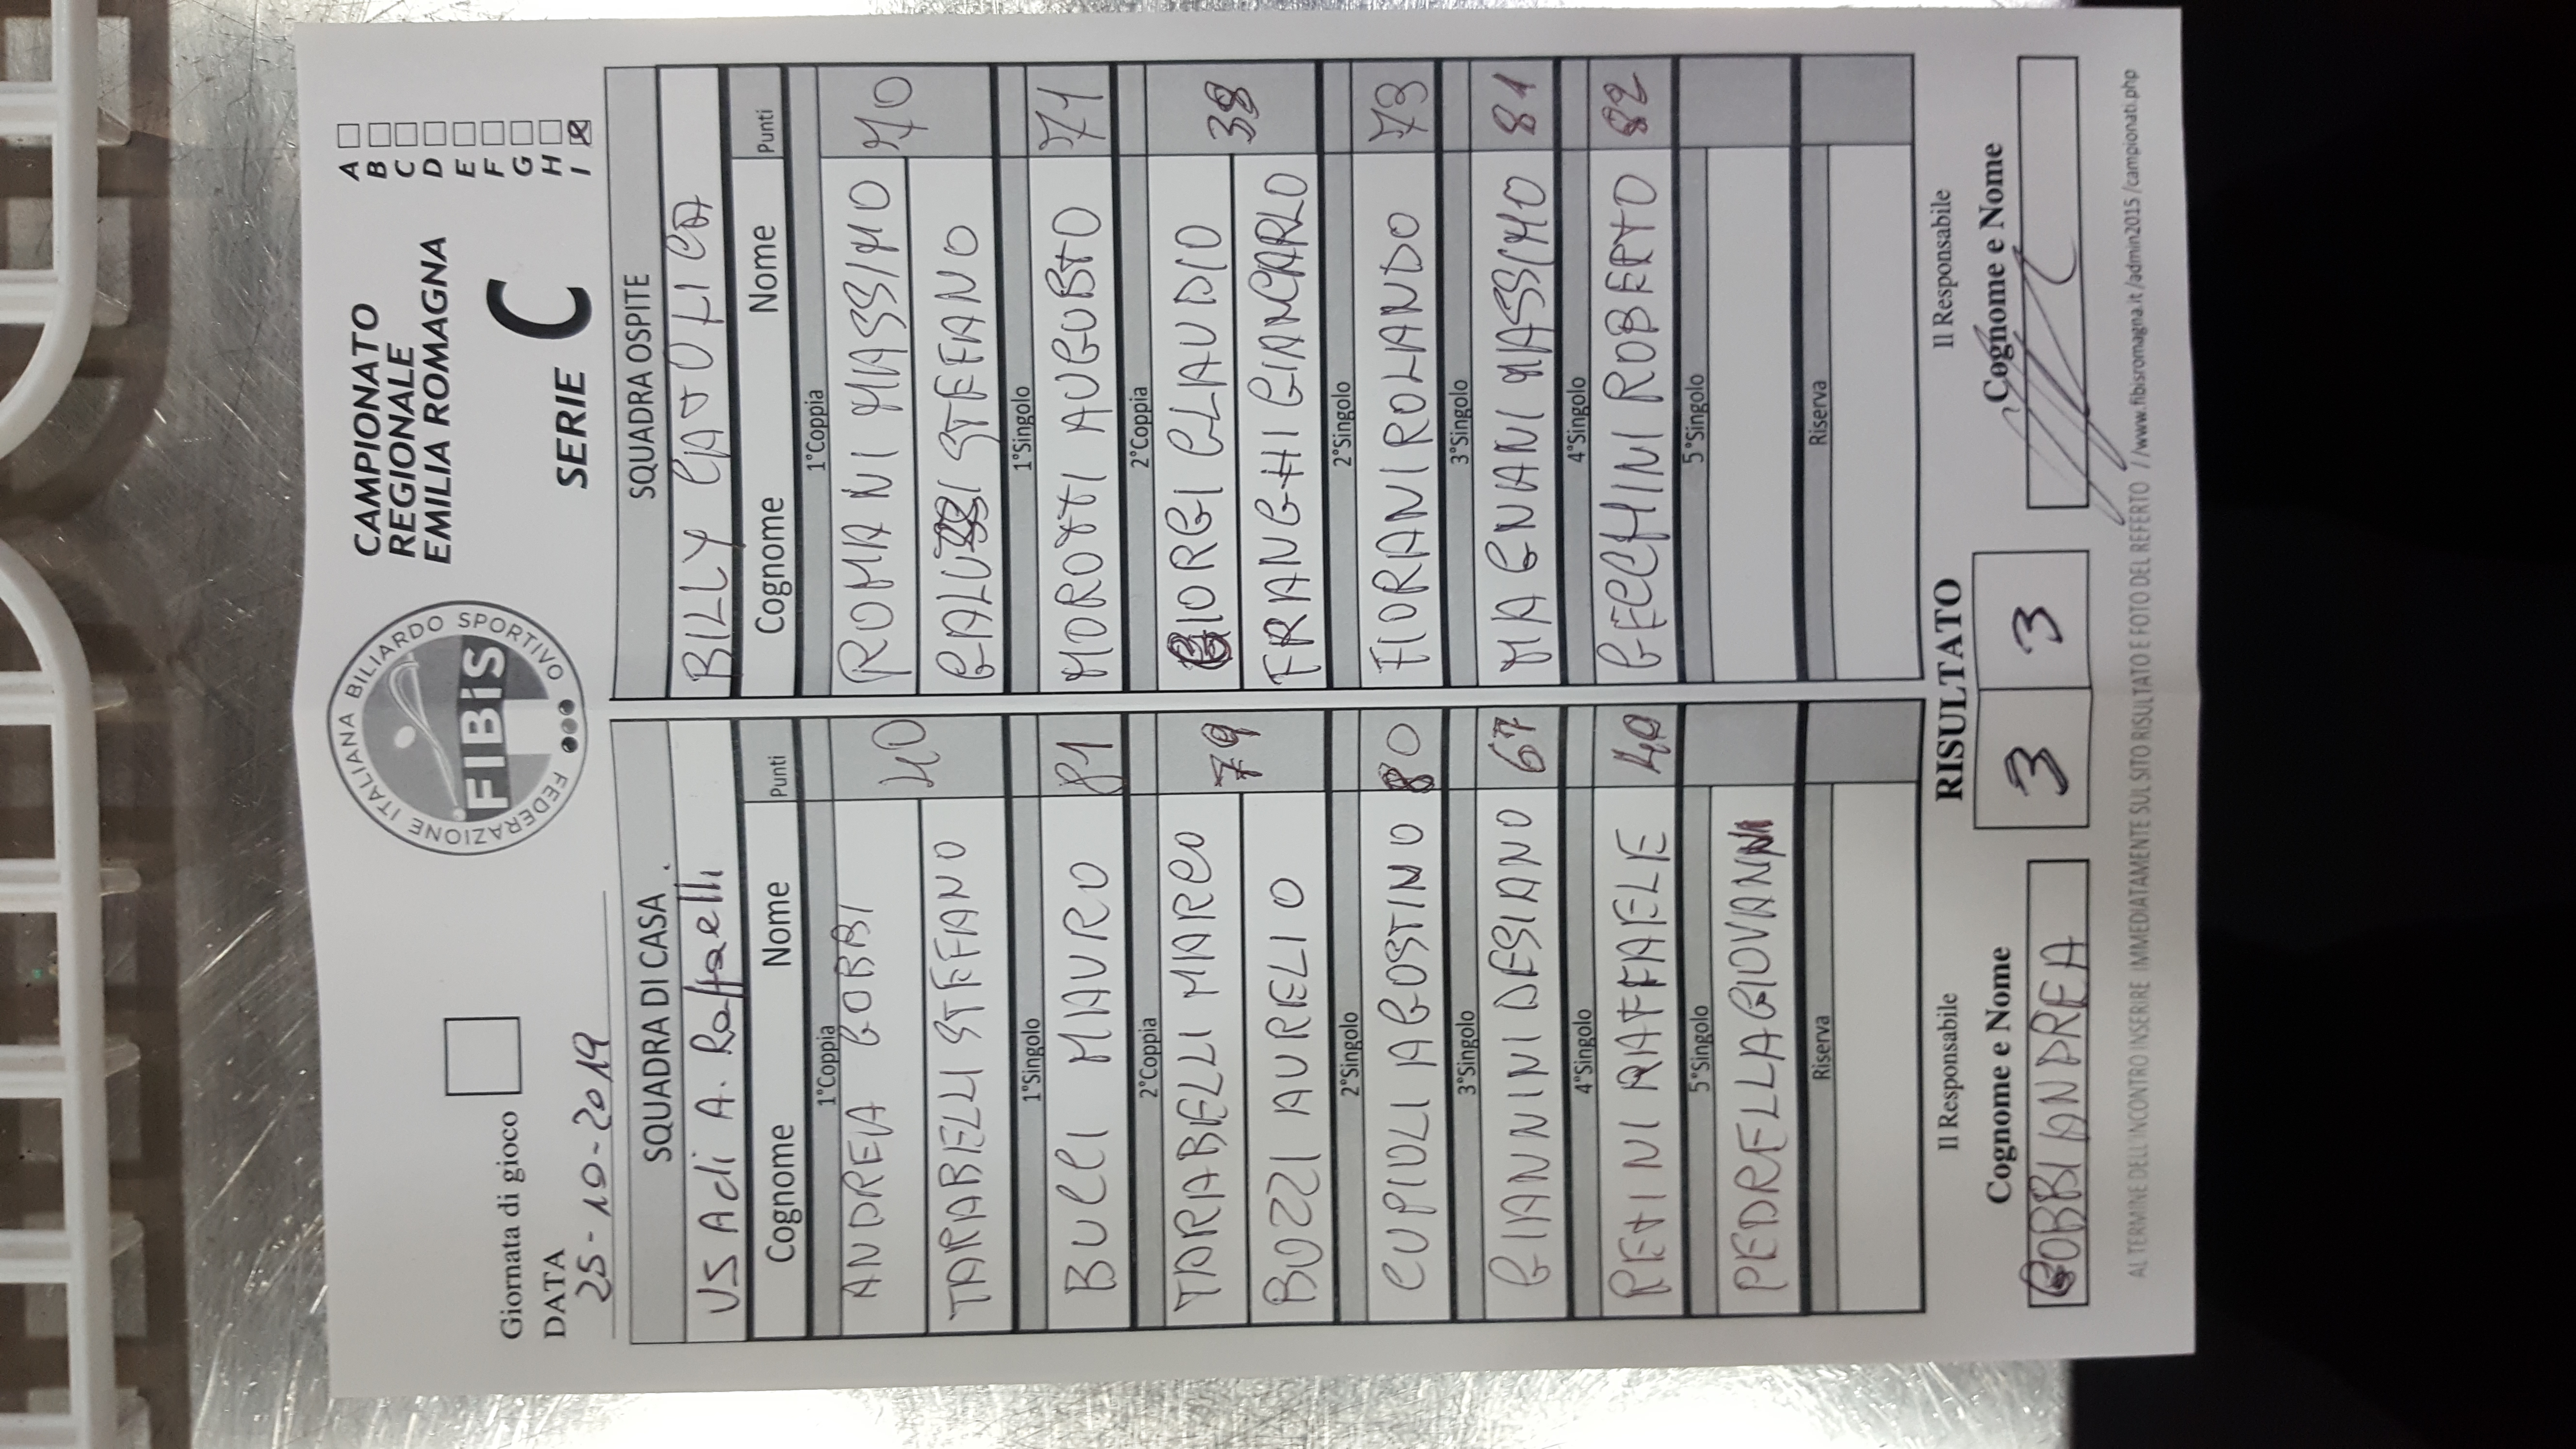 Giornata di gioco
DATA
25-10-2019
FEDERAZIONE ITALIANA BILIARDO SPORTIVO
FIBiS
CAMPIONATO
REGIONALE
EMILIA ROMAGNA
SERIE C
A
B
C
D
E
F
G
H
I
SQUADRA DI CASA SQUADRA OSPITE
US Acli A. Raffaelli BILLY CATOLICA
Cognome Nome Punti Cognome Nome Punti
1°Coppia 1°Coppia
ANDREA GOBBI 40 ROMANI MASSIMO 70
TARABELLI STEFANO STEFANO
1°Singolo 1°Singolo
BUCCI MAURO 81 MOROTTI AUGUSTO 71
2°Coppia 2°Coppia
TARABELLI MARCO 79 GIORGI CLAUDIO 38
BUZZI AURELIO FRANGHI GIANCARLO
2°Singolo 2°Singolo
CUPIOLI AGOSTINO 80 FIORANI ROLANDO 73
3°Singolo 3°Singolo
GIANNINI DESIANO 67 MAGNANI MASSIMO 81
4°Singolo 4°Singolo
RAFFAELE 40 CECCHINI ROBERTO 82
5°Singolo 5°Singolo
PEDRELLA GIOVANNI
Riserva Riserva
Il Responsabile RISULTATO Il Responsabile
Cognome e Nome 3 3 Cognome e Nome
GOBBI ANDREA
AL TERMINE DELL'INCONTRO INSERIRE IMMEDIATAMENTE SUL SITO RISULTATO E FOTO DEL REFERTO //www.fibisromagna.it/admin2015/campionati.php